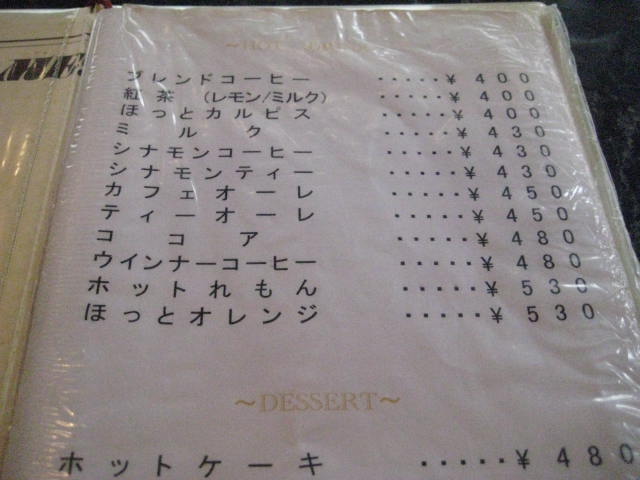 ~HOT DRINK~
ブレンドコーヒー ・・・・・¥ 400
紅 茶 (レモン/ミルク) ・・・・・¥ 400
ほっとカルピス ・・・・・¥ 400
ミルク ・・・・・¥ 430
シナモンコーヒー ・・・・・¥ 430
シナモンティー ・・・・・¥ 430
カフェオーレ ・・・・・¥ 450
ティーオーレ ・・・・・¥ 450
ココア ・・・・・¥ 480
ウインナーコーヒー ・・・・・¥ 480
ホットれもん ・・・・・¥ 530
ほっとオレンジ ・・・・・¥ 530
~DESSERT~
ホットケーキ ・・・・・¥ 480